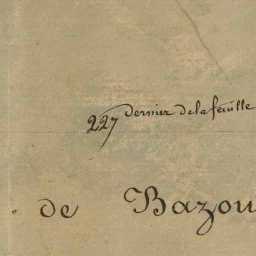 227 dernier de la feuille
de Bazou